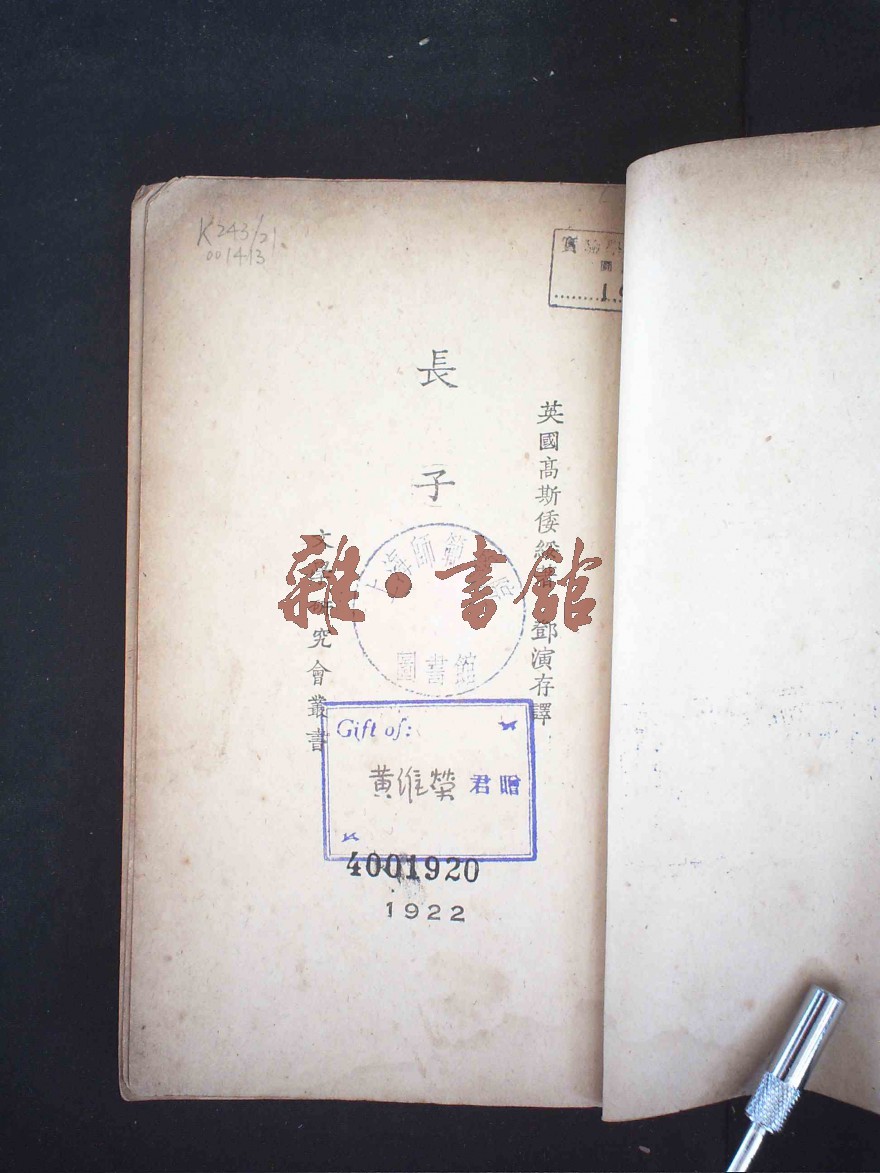 K243/21
001413
寶
圖
19
長子
英國高斯倭綏著 鄧演存譯
文學研究會叢書
上海師範學院
圖書館
雜·書館
Gift of:
黃維榮 君贈
4001920
1922